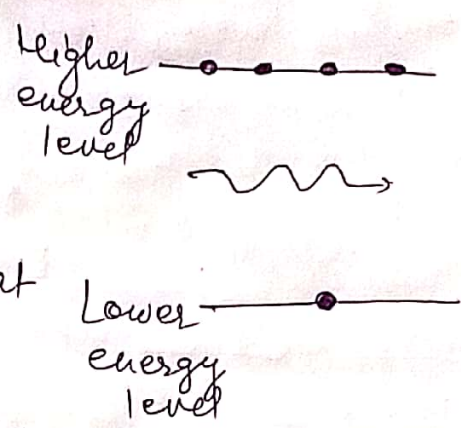 Higher
energy
level
Lower
energy
level